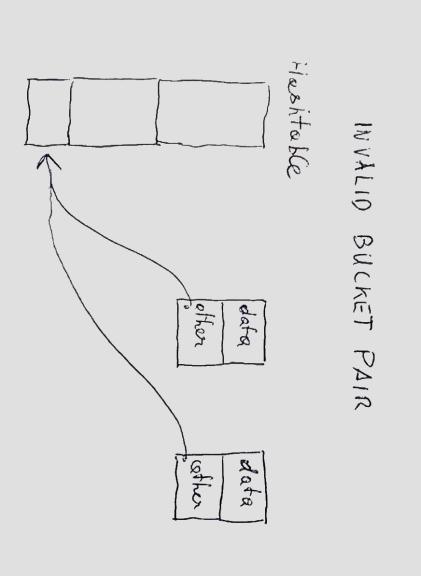 INVALID BUCKET PAIR
Hashtable
data
other
data
other